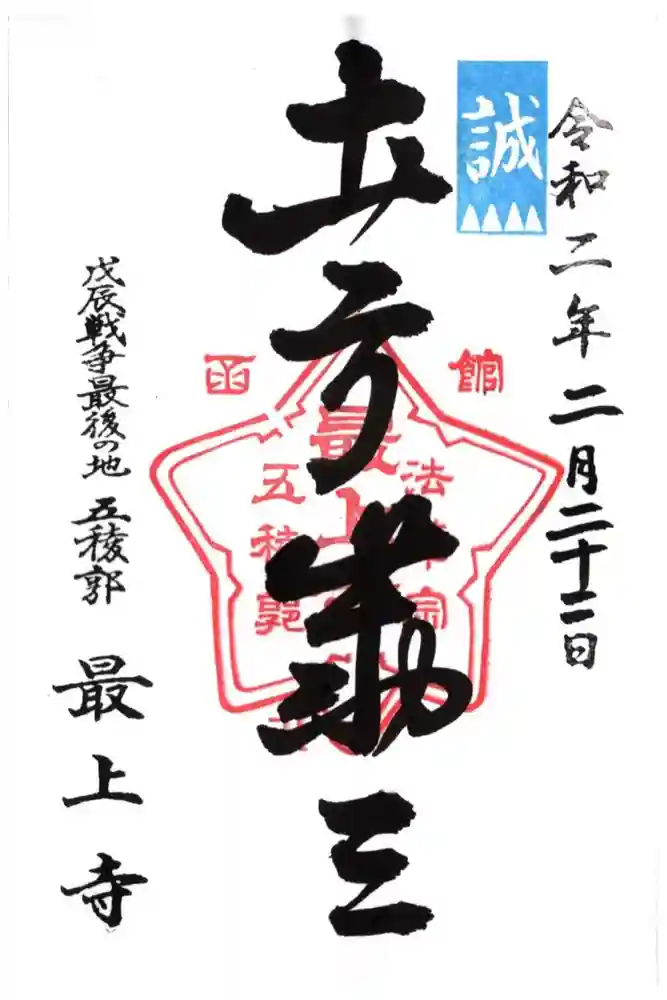 令和二年二月二十二日
誠
土方歳三
函館
法華宗
最上
五稜郭
戊辰戦争最後の地 五稜郭
最上寺